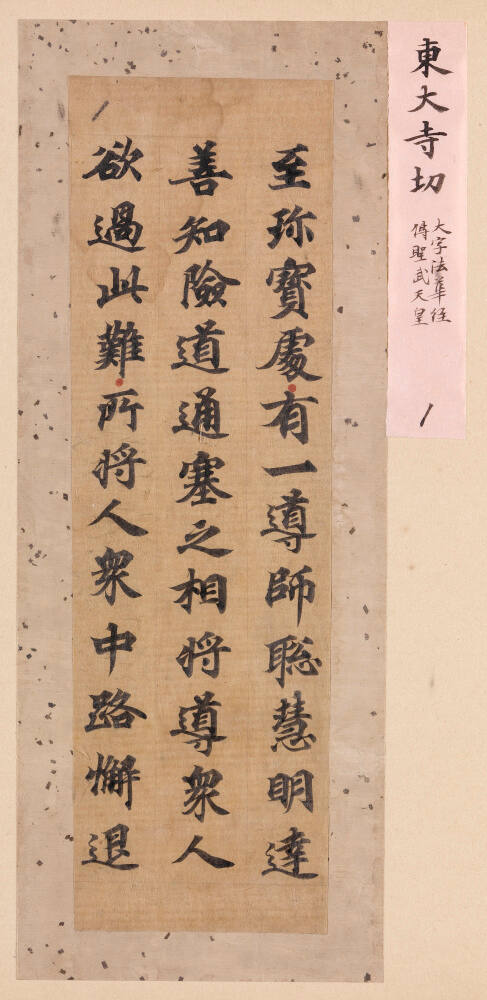 東大寺切
大字法華経
傳聖武天皇
至珎寳處有一導師聡慧明達
善知險道通塞之相将導衆人
欲過此難所将人衆中路懈退